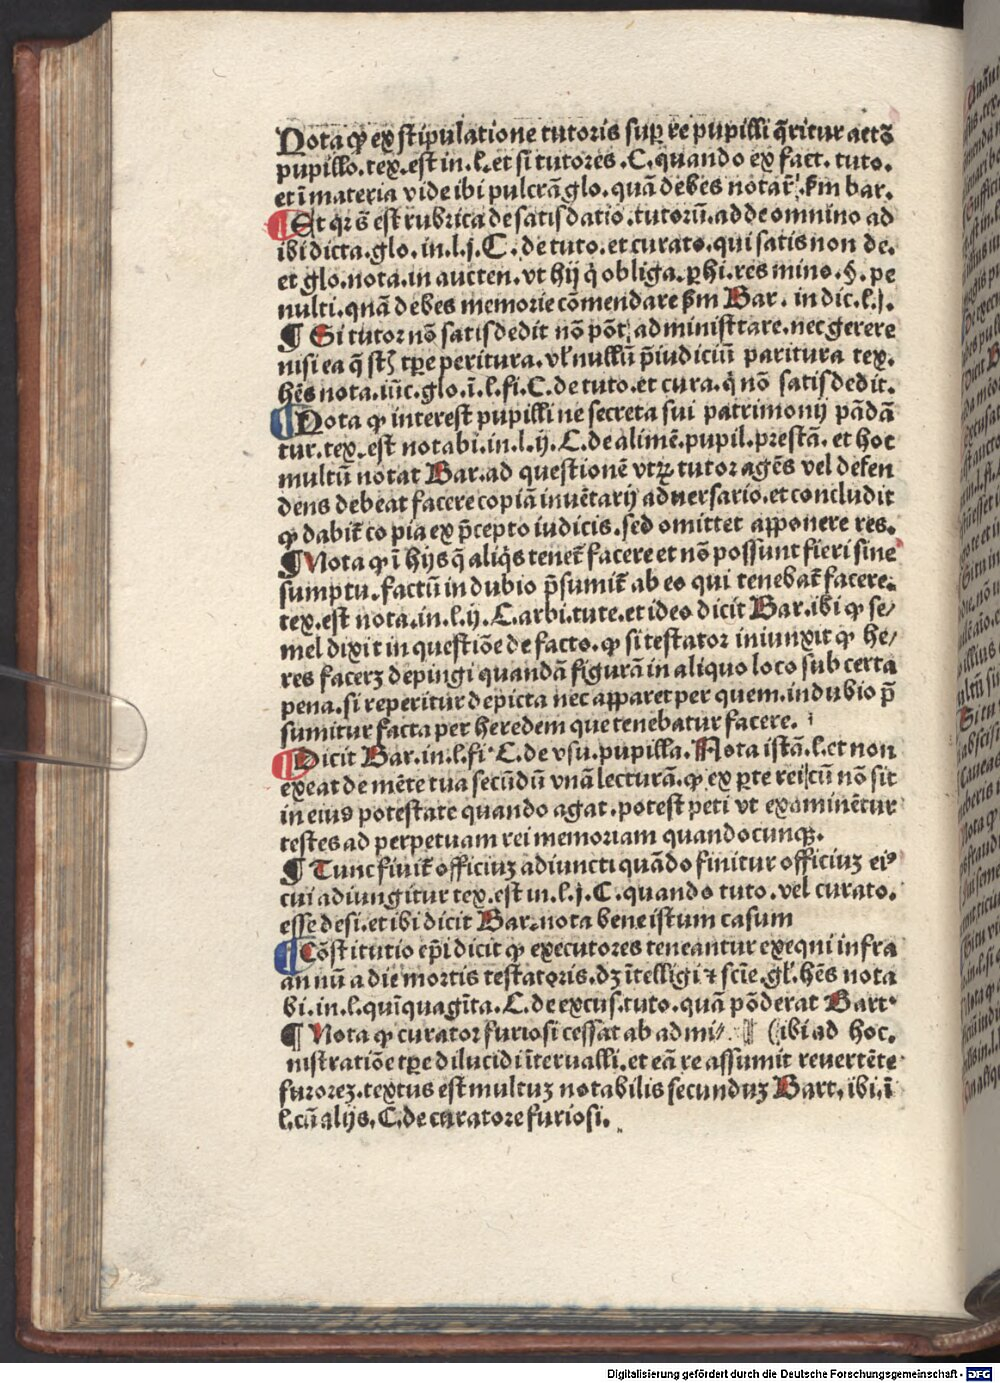 Nota ꝙ ex stipulatione tutoris suꝑ re pupilli q̄ritur actꝫ
pupillo.tex.est in.l.et si tutores.C.quando ex fact.tuto.
et ī materia vide ibi pulcrā glo.quā debes notar̄.ẜm bar.
¶ Et qꝛ s̄ est rubrica de satisdatio.tutorū.adde omnino ad
ibi dicta.glo.in.l.j.C.de tuto.et curato.qui satis non de.
et glo.nota.in aucten.vt hij q̇ obliga.ꝑhi.res mino.§.pe
nulti.quā debes memorie cōmendare ẜm Bar.in dic.l.j.
¶ Si tutor nō satisdedit nō pōt administrare.nec gerere
nisi ea q̄ tꝑe peritura.vl̓ nullū p̄iudiciū paritura tex.
hēs nota.iūc.glo.ī.l.fi.C.de tuto.et cura.q̇ nō satisdedit.
¶ Nota ꝙ interest pupilli ne secreta sui patrimonij pādā
tur.tex.est notabi.in.l.ij.C.de alimē.pupil.prestā.et hoc
multū notat Bar.ad questionē vtꝝ tutor agēs vel defen
dens debeat facere copiā inuētarij aduersario.et concludit
ꝙ dabit̄ copia ex p̄cepto iudicis.sed omittet apponere res.
¶ Nota ꝙ ī hijs q̄ aliq̇s tenet̄ facere et nō possunt fieri sine
sumptu.factū in dubio p̄sumit̄ ab eo qui tenebat̄ facere.
tex.est nota.in.l.ij.C.arbi.tute.et ideo dicit Bar.ibi ꝙ se/
mel dixit in questiōe de facto.ꝙ si testator iniunxit ꝙ he/
res facerꝫ depingi quandā figurā in aliquo loco sub certa
pena.si reperitur depicta nec apparet per quem.in dubio p̄
sumitur facta per heredem que tenebatur facere.
¶ Dicit Bar.in.l.fi.C.de vsu.pupilla.Nota istā.l.et non
exeat de mēte tua secūdū vnā lecturā.ꝙ ex ꝑte rei cū nō sit
in eius potestate quando agat.potest peti vt examinētur
testes ad perpetuam rei memoriam quandocunqꝫ.
¶ Tunc finit̄ officiuꝫ adiuncti quādo finitur officiuꝫ eiꝰ
cui adiungitur tex.est in.l.j.C.quando tuto.vel curato.
esse desi.et ibi dicit Bar.nota bene istum casum
¶ Cōstitutio ep̄i dicit ꝙ executores teneantur exequi infra
annū a die mortis testatoris.dꝫ ītelligi ⁊ scīe.gl̓.hēs nota
bi.in.l.quīquagīta.C.de excus.tuto.quā pōderat Bart.
¶ Nota ꝙ curator furiosi cessat ab admi/. ¶ (ibi ad hoc.
nistratiōe tꝑe dilucidi īterualli.et eā reassumit reuertēte
furoreꝫ.textus est multuꝫ notabilis secunduꝫ Bart.ibi.ī
l.cū alijs.C.de curatore furiosi.
Digitalisierung gefördert durch die Deutsche Forschungsgemeinschaft - DFG